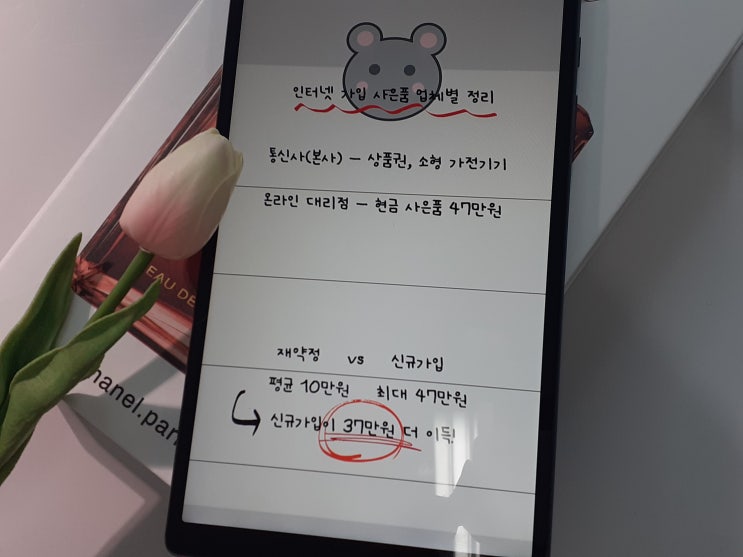 인터넷 가입 사은품 업체별 정리
통신사(본사) – 상품권, 소형 가전기기
온라인 대리점 – 현금 사은품 47만원
재약정 vs 신규가입
평균 10만원 최대 47만원
신규가입이 37만원 더 이득!
EAU DE
hanel.par